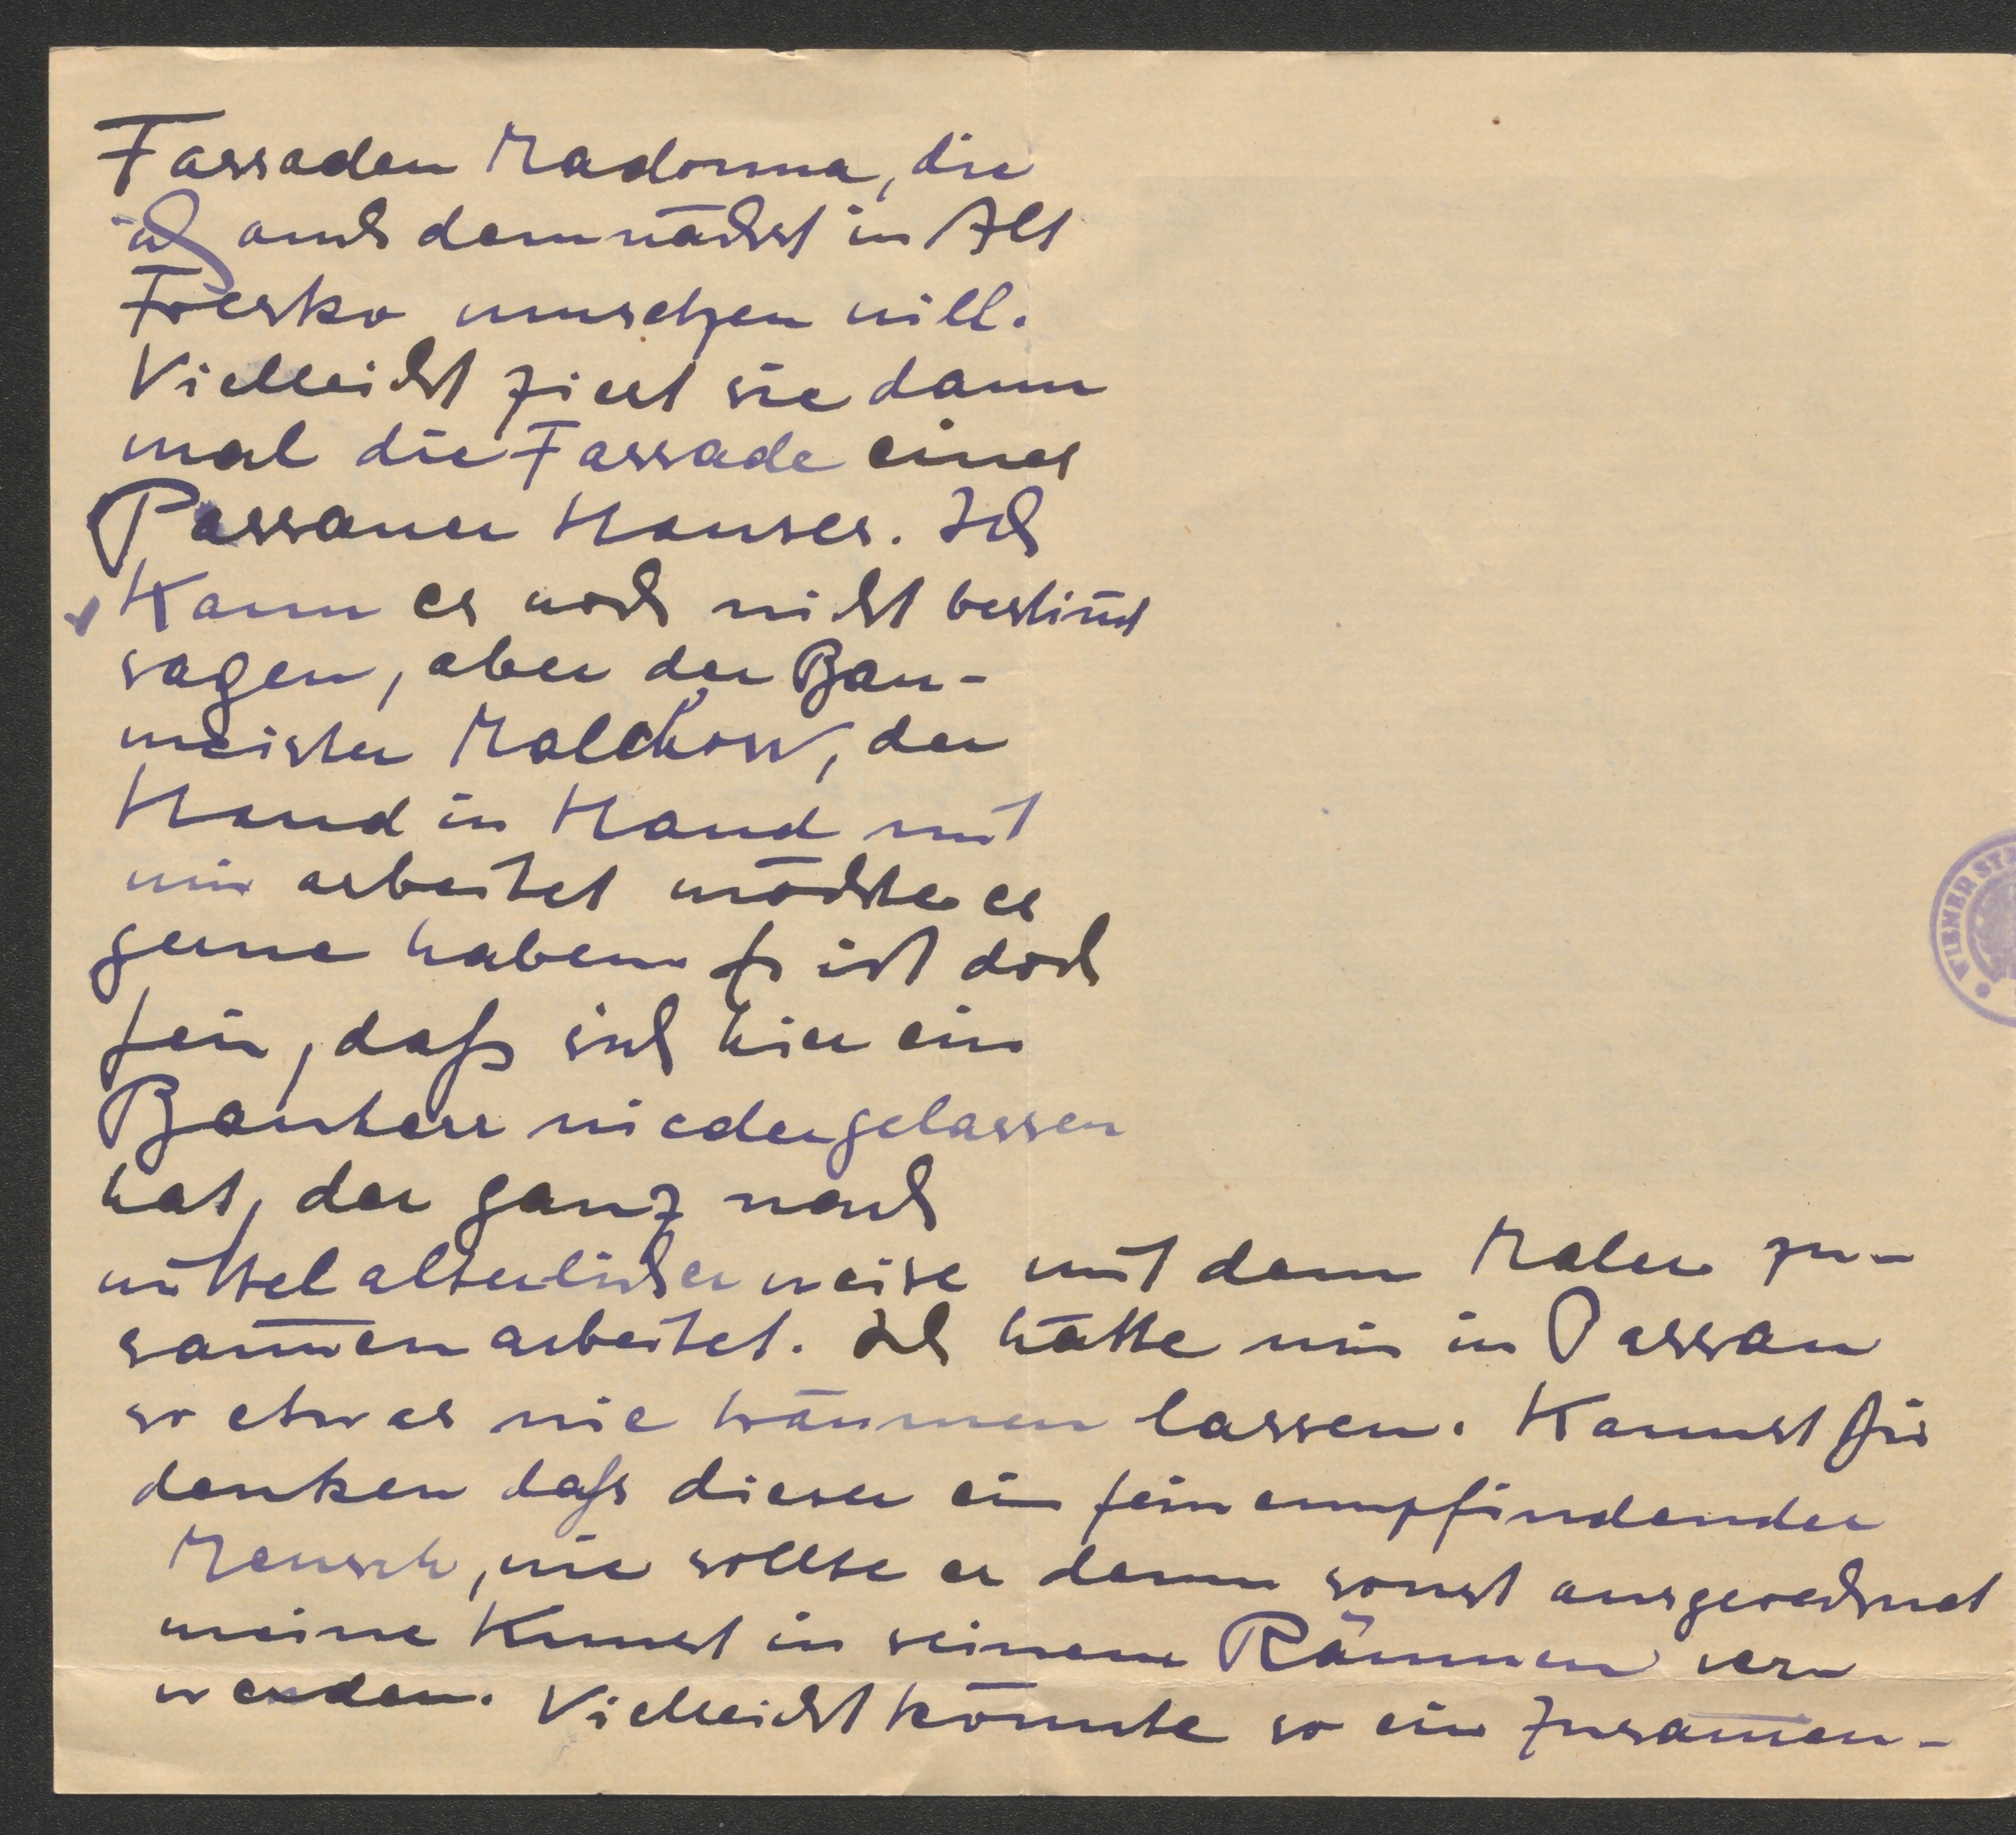 Fassaden Madonna, die
ich auch demnächst in Alt
Fresko umsetzen will.
Vielleicht ziert sie dann
mal die Fassade eines
Passauer Hauses. Ich
Kann es noch nicht bestim̄t
sagen, aber der Bau-
meister Malchow, der
Hand in Hand mit
mir arbeitet möchte es
gerne haben. Es ist doch
fein, daß sich hier ein
Bauherr niedergelassen
hat, der ganz nach
mittelalterlicher weise mit dem Maler zu-
sam̄en arbeitet. Ich hätte mir in Passau
so etwas nie träumen lassen. Kannst Dir
denken daß dieser ein feinempfindender
Mensch, wie sollte er denn sonst ausgerechnet
meine Kunst in seinem Räumen ver
wenden. Vielleicht könnte so ein Zusam̄en-
WIENER ST